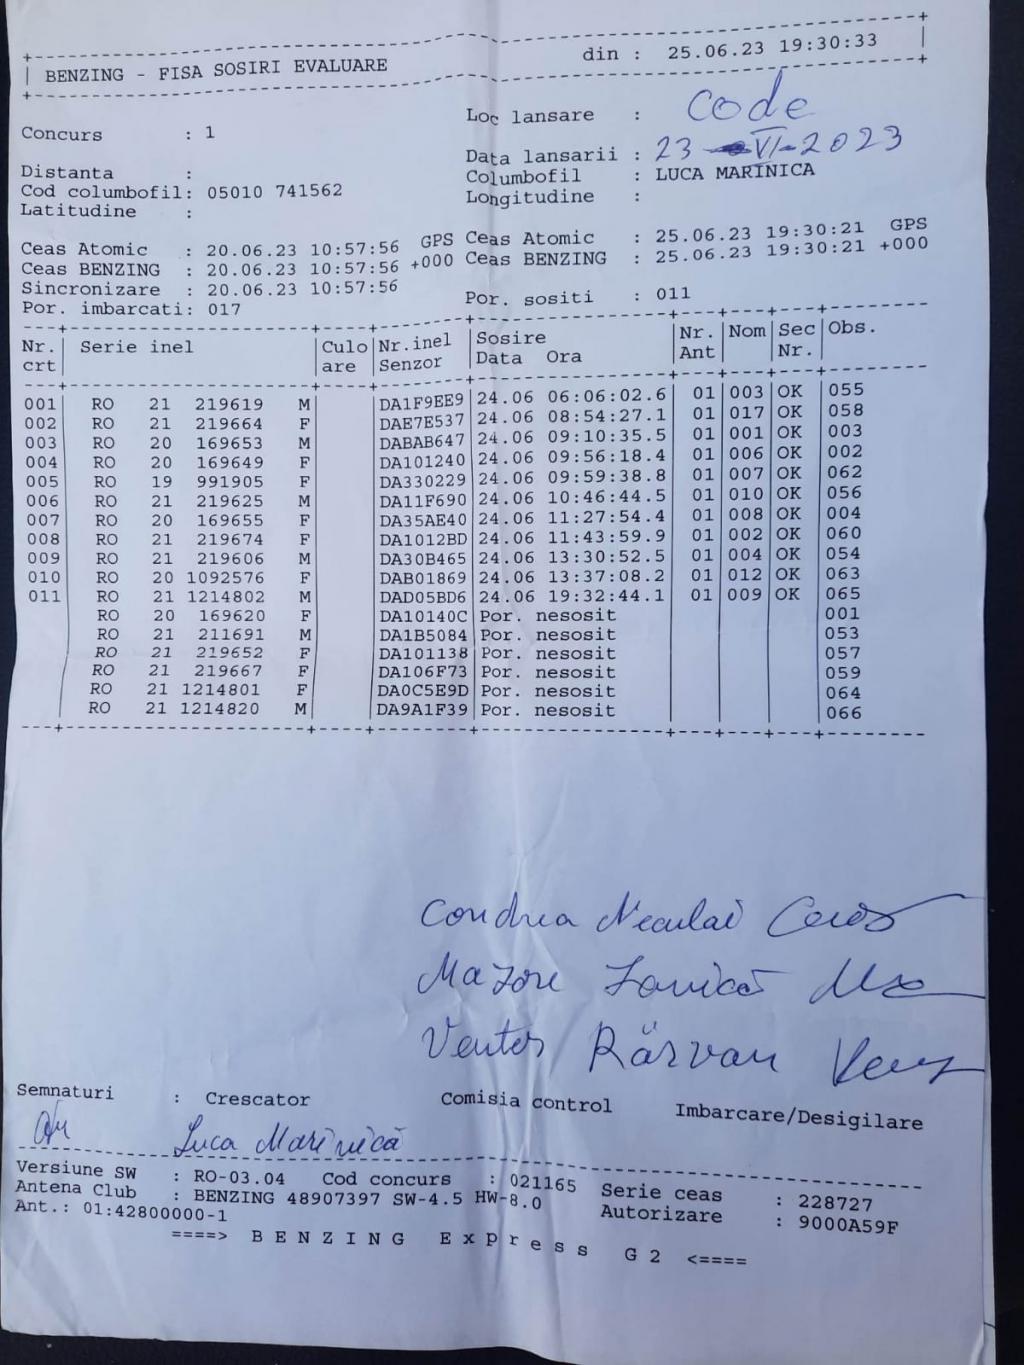 BENZING - FISA SOSIRI EVALUARE din : 25.06.23 19:30:33
Concurs : 1 Loc lansare : Code
Data lansarii : 23 VI-2023
Distanta : Columbofil : LUCA MARINICA
Cod columbofil: 05010 741562 Longitudine :
Latitudine :
Ceas Atomic : 20.06.23 10:57:56 GPS Ceas Atomic : 25.06.23 19:30:21 GPS
Ceas BENZING : 20.06.23 10:57:56 +000 Ceas BENZING : 25.06.23 19:30:21 +000
Sincronizare : 20.06.23 10:57:56
Por. imbarcati: 017 Por. sositi : 011
Nr. crt | Serie inel | Culoare | Nr.inel Senzor | Sosire Data Ora | Nr. Ant | Nom | Sec Nr. | Obs.
001 RO 21 219619 M DA1F9EE9 24.06 06:06:02.6 01 003 OK 055
002 RO 21 219664 F DAE7E537 24.06 08:54:27.1 01 017 OK 058
003 RO 20 169653 M DABAB647 24.06 09:10:35.5 01 001 OK 003
004 RO 20 169649 F DA101240 24.06 09:56:18.4 01 006 OK 002
005 RO 19 991905 F DA330229 24.06 09:59:38.8 01 007 OK 062
006 RO 21 219625 M DA11F690 24.06 10:46:44.5 01 010 OK 056
007 RO 20 169655 F DA35AE40 24.06 11:27:54.4 01 008 OK 004
008 RO 21 219674 F DA1012BD 24.06 11:43:59.9 01 002 OK 060
009 RO 21 219606 M DA30B465 24.06 13:30:52.5 01 004 OK 054
010 RO 20 1092576 F DAB01869 24.06 13:37:08.2 01 012 OK 063
011 RO 21 1214802 M DAD05BD6 24.06 19:32:44.1 01 009 OK 065
RO 20 169620 F DA10140C Por. nesosit 001
RO 21 211691 M DA1B5084 Por. nesosit 053
RO 21 219652 F DA101138 Por. nesosit 057
RO 21 219667 F DA106F73 Por. nesosit 059
RO 21 1214801 F DA0C5E9D Por. nesosit 064
RO 21 1214820 M DA9A1F39 Por. nesosit 066
Condrea Neculai
Mazore Ionică
Răzvan
Semnaturi : Crescator Comisia control Imbarcare/Desigilare
Luca Marinică
Versiune SW : RO-03.04 Cod concurs : 021165 Serie ceas : 228727
Antena Club : BENZING 48907397 SW-4.5 HW-8.0 Autorizare : 9000A59F
Ant.: 01:42800000-1
====> BENZING Express G2 <====